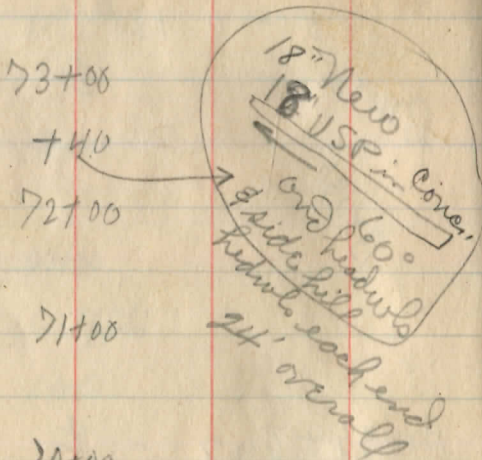 73+00
+40
72+00
71+00
70+00
18" New
18" VSP in Conc.
60°
and headwls
& side hill
hedwls each end
24' overall